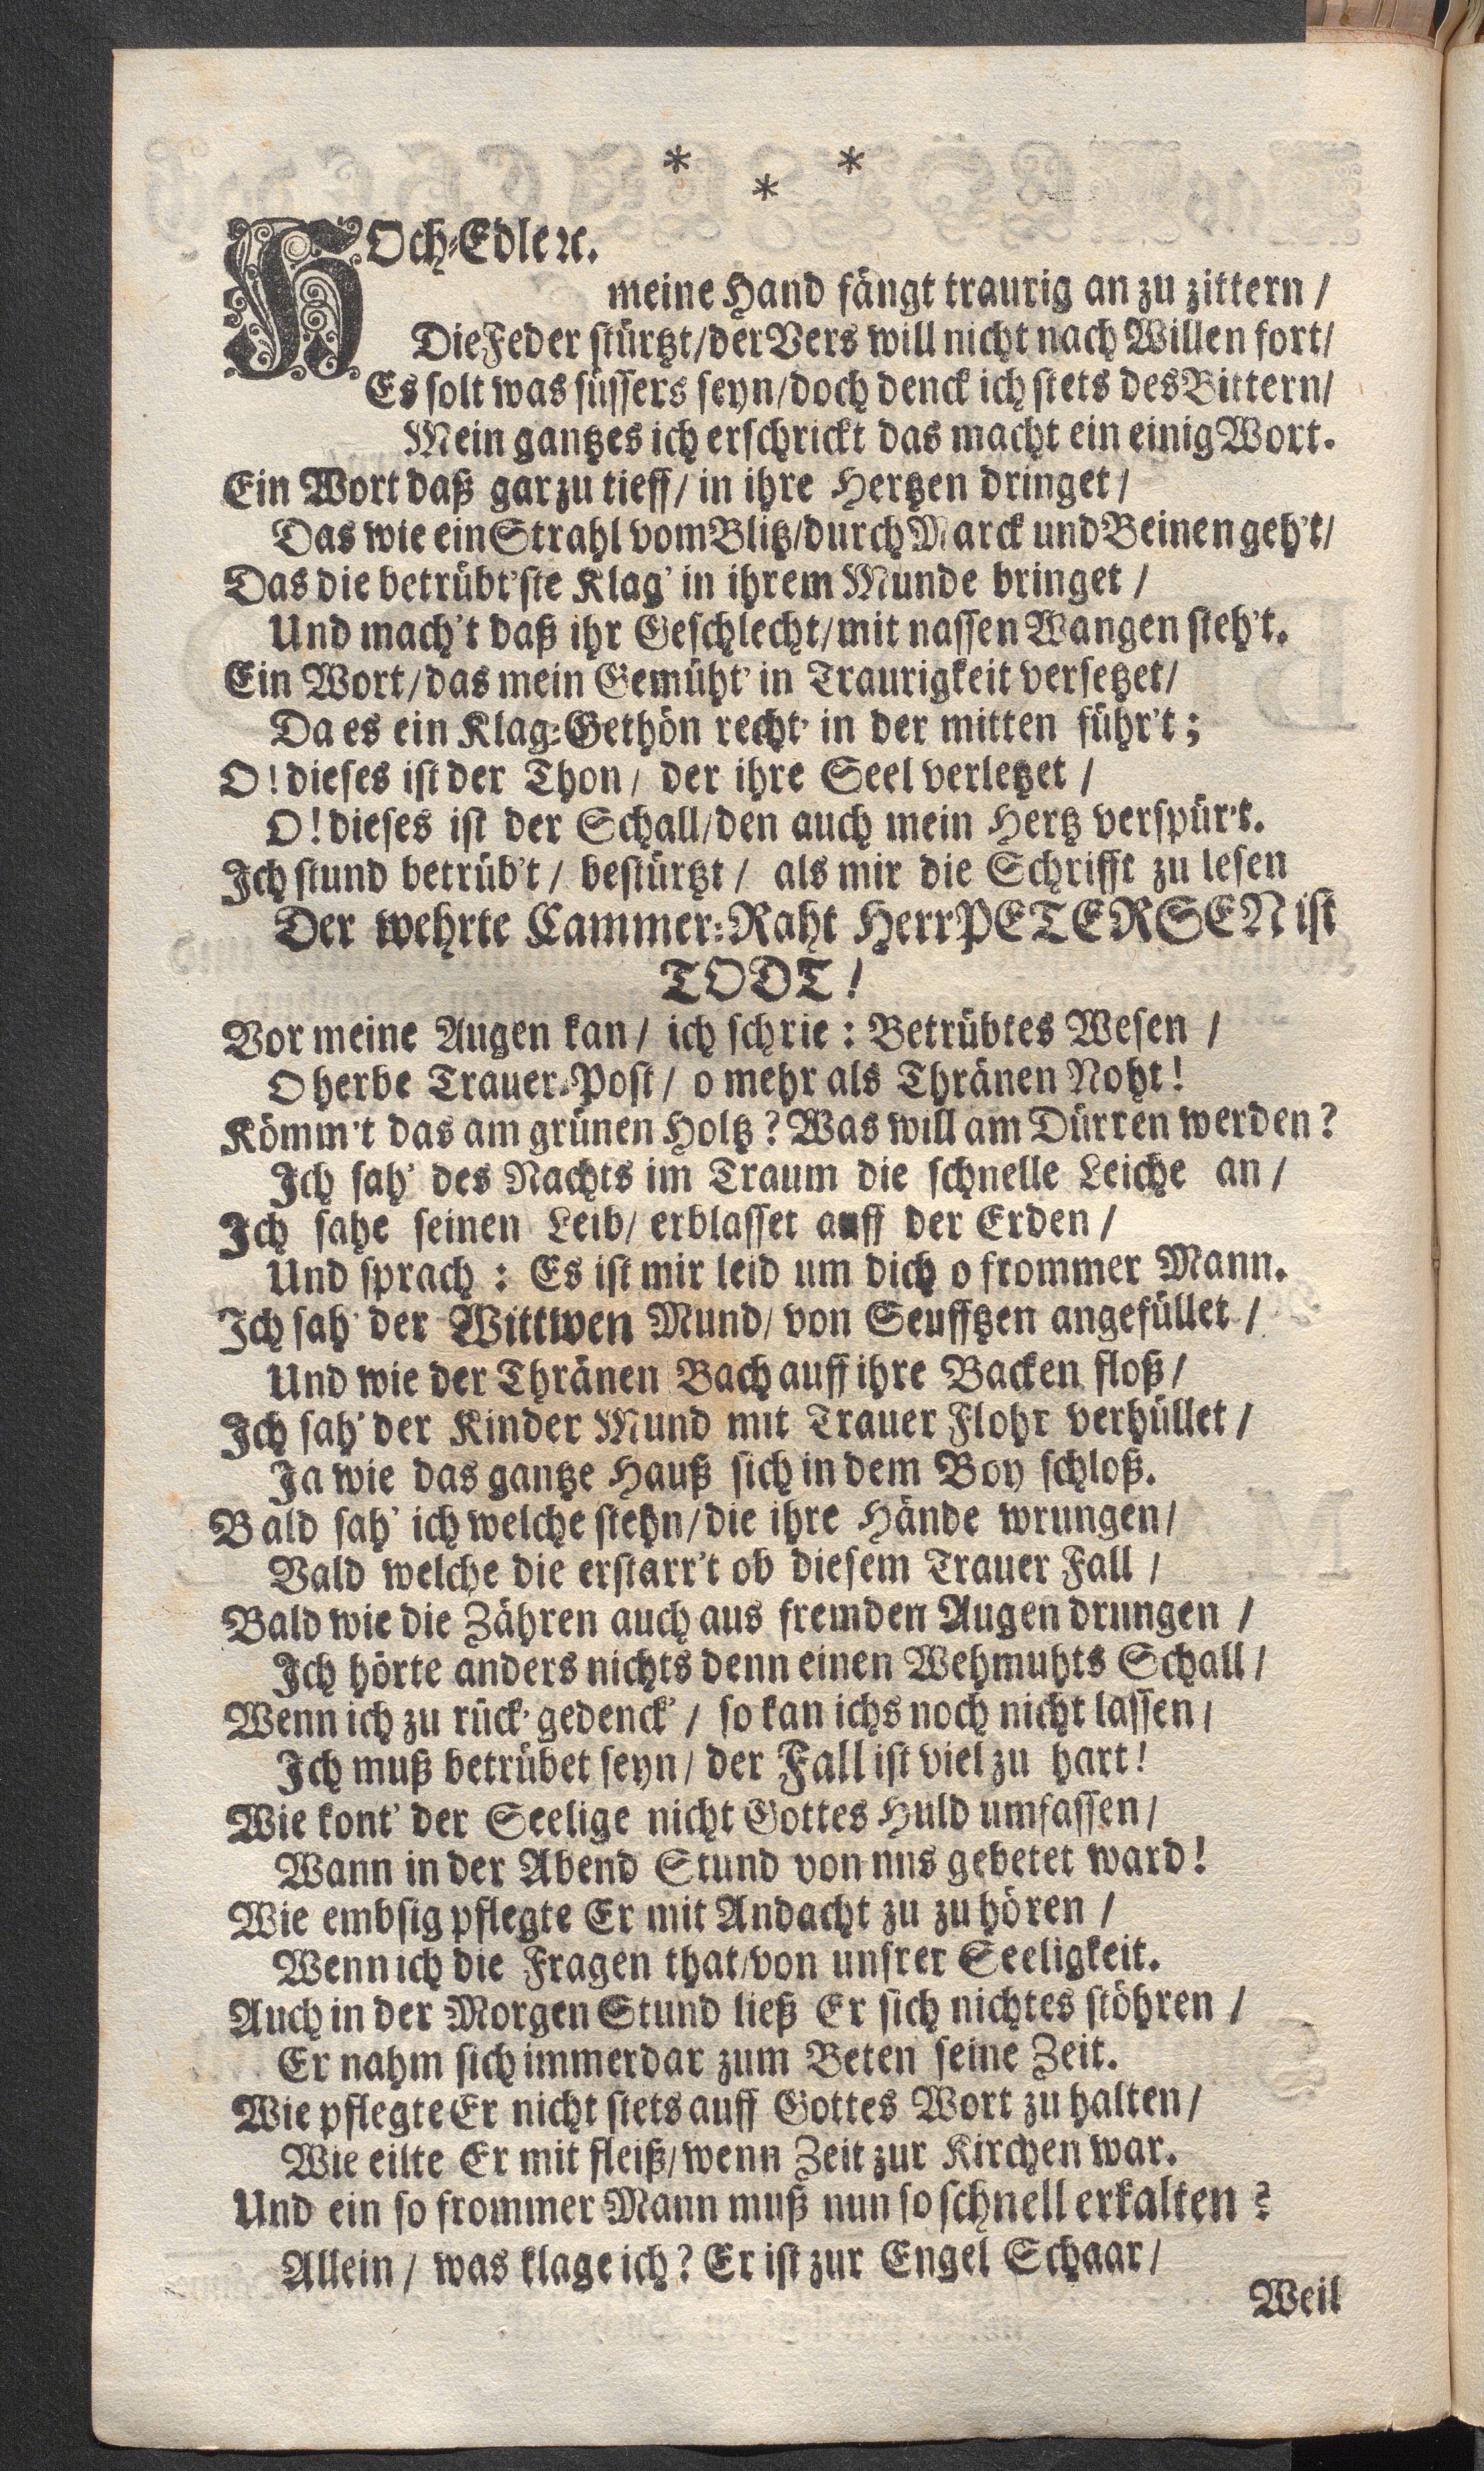 * *
*
HOch-Edler ꝛc.
meine Hand fängt traurig an zu zittern /
Die Feder stürtzt / der Vers will nicht nach Willen fort /
Es solt was süssers seyn / doch denck ich stets des Bittern /
Mein gantzes ich erschrickt das macht ein einig Wort.
Ein Wort daß gar zu tieff / in ihre Hertzen dringet /
Das wie ein Strahl vom Blitz / durch Marck und Beinen geh't /
Das die betrübt'ste Klag' in ihrem Munde bringet /
Und mach't daß ihr Geschlecht / mit nassen Wangen steh't.
Ein Wort / das mein Gemüht' in Traurigkeit versetzet /
Da es ein Klag-Gethön recht' in der mitten führ't ;
O! dieses ist der Thon / der ihre Seel verletzet /
O! dieses ist der Schall / den auch mein Hertz verspür't.
Ich stund betrüb't / bestürtzt / als mir die Schrifft zu lesen
Der wehrte Cammer-Raht Herr PETERSEN ist
TODT!
Vor meine Augen kan / ich schrie : Betrübtes Wesen /
O herbe Trauer-Post / o mehr als Thränen Noht!
Kömm't das am grünen Holtz? Was will am Dürren werden?
Ich sah' des Nachts im Traum die schnelle Leiche an /
Ich sahe seinen Leib / erblasset auff der Erden /
Und sprach : Es ist mir leid um dich o frommer Mann.
Ich sah' der Wittwen Mund / von Seufftzen angefüllet /
Und wie der Thränen Bach auff ihre Backen floß /
Ich sah' der Kinder Mund mit Trauer Flohr verhüllet /
Ja wie das gantze Hauß sich in dem Boy schloß.
Bald sah' ich welche stehn / die ihre Hände wrungen /
Bald welche die erstarr't ob diesem Trauer Fall /
Bald wie die Zähren auch aus fremden Augen drungen /
Ich hörte anders nichts denn einen Wehmuhts Schall /
Wenn ich zu rück' gedenck' / so kan ichs noch nicht lassen /
Ich muß betrübet seyn / der Fall ist viel zu hart!
Wie kont' der Seelige nicht Gottes Huld umfassen /
Wann in der Abend Stund von nns gebetet ward!
Wie embsig pflegte Er mit Andacht zu zu hören /
Wenn ich die Fragen that / von unsrer Seeligkeit.
Auch in der Morgen Stund ließ Er sich nichtes stöhren /
Er nahm sich immerdar zum Beten seine Zeit.
Wie pflegte Er nicht stets auff Gottes Wort zu halten /
Wie eilte Er mit fleiß / wenn Zeit zur Kirchen war.
Und ein so frommer Mann muß nun so schnell erkalten ?
Allein / was klage ich? Er ist zur Engel Schaar /
Weil